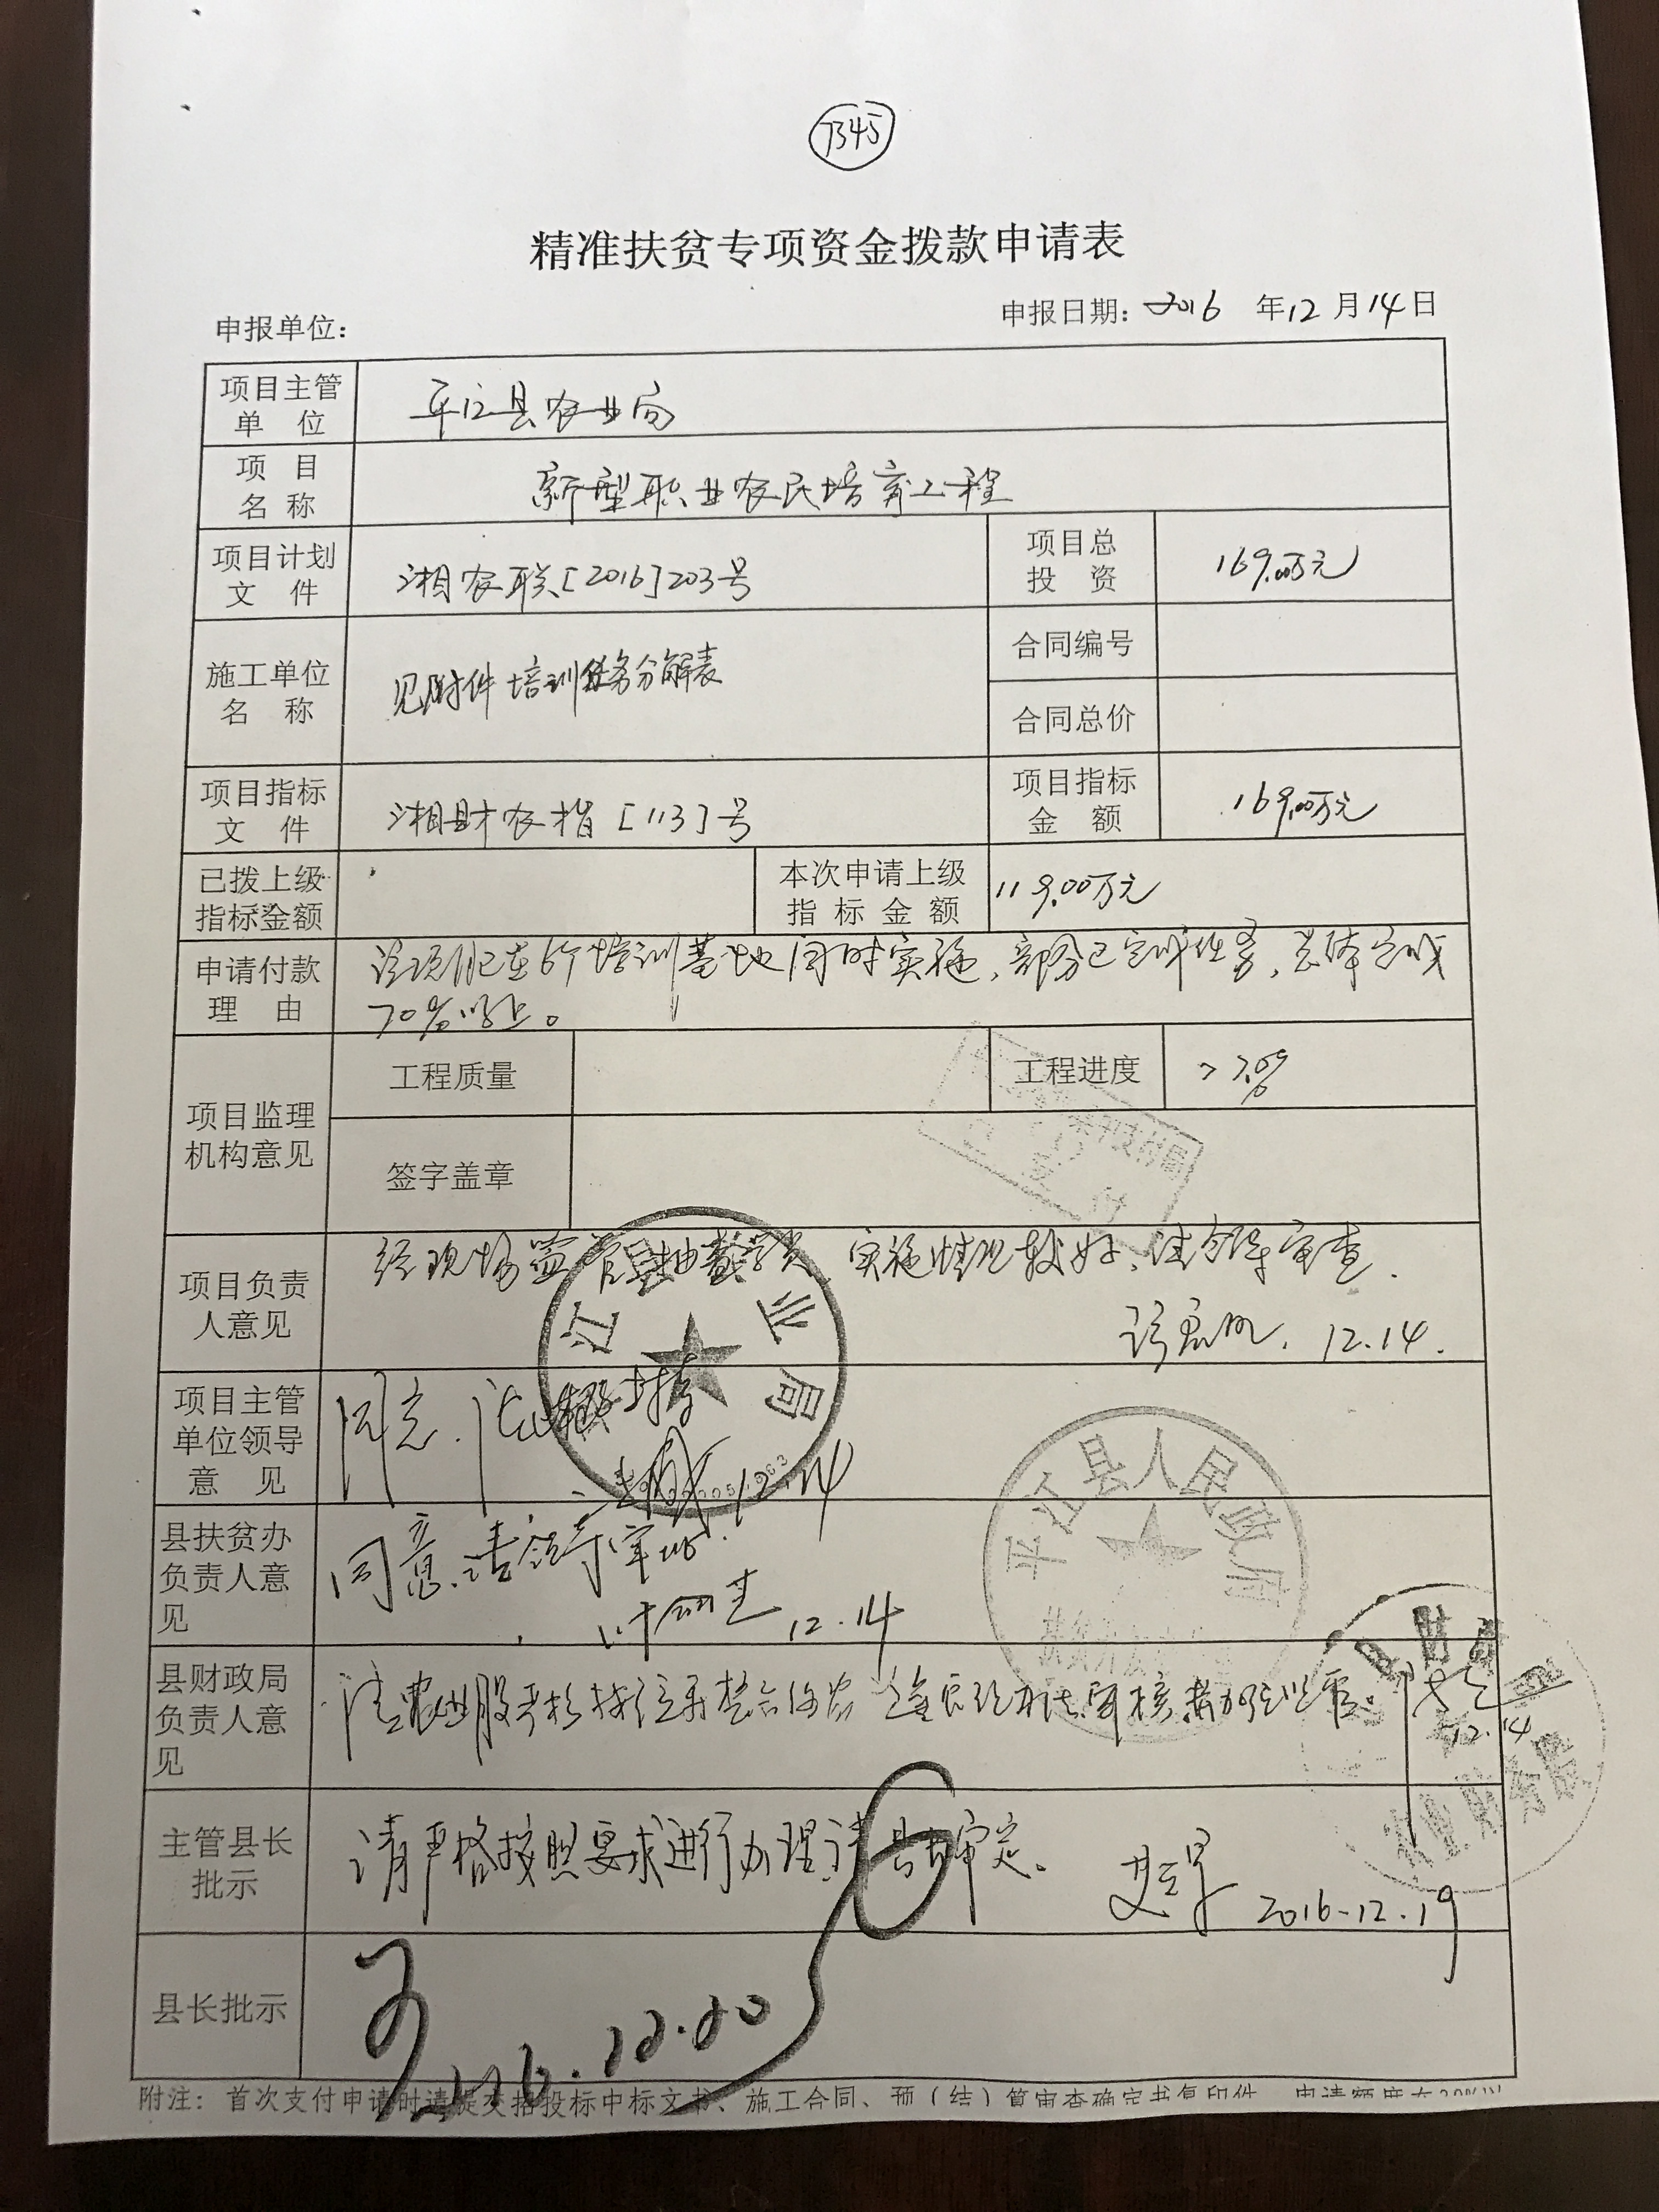 7345
精准扶贫专项资金拨款申请表
申报单位： 申报日期：2016 年12月14日
项目主管单 位 平江县农业局
项 目名 称 新型职业农民培育工程
项目计划文 件 湘农联[2016]203号 项目总投 资 169.00万元
施工单位名 称 见附件培训任务分解表 合同编号
合同总价
项目指标文 件 湘财农指[113]号 项目指标金 额 169.00万元
已拨上级指标金额 本次申请上级指 标 金 额 119.00万元
申请付款理 由 该项目已在6个培训基地同时实施，部分已完成任务，总体完成
70%以上。
项目监理机构意见 工程质量 工程进度 >70%
签字盖章
项目负责人意见 经现场监管且抽查学员，实施情况较好，请领导审查.
12.14.
江 业局
项目主管单位领导意 见 同意. 12.14
县扶贫办负责人意见 同意.请领导审批. 12.14
平江县人民政府
扶贫
县财政局负责人意见 请农业股严格按 12.14
财
主管县长批示 请严格按照要求进行办理,请县长审定。 2016-12.19
县长批示 2016.12.20
附注：首次支付申请时请提交招投标中标文书、施工合同、预（结）算审查确定书复印件，申请额度在